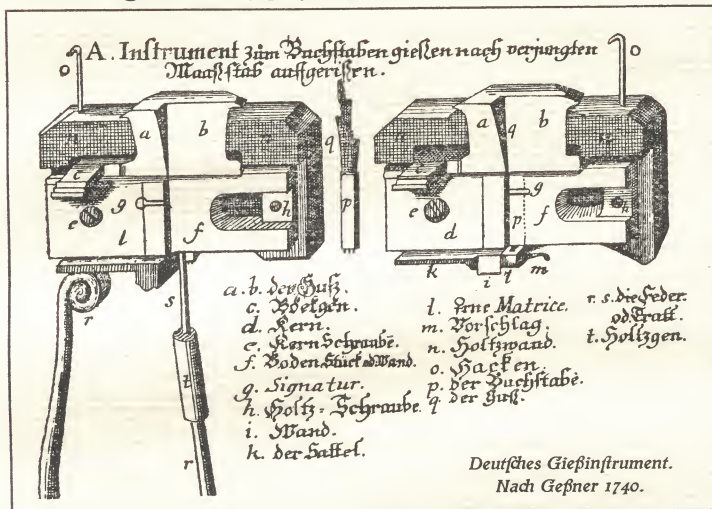 A. Instrument zum Buchstaben gießen nach verjungten
Maaßstab auffgerißen.
o
o
n
a
b
n
q
c
e
g
h
l
f
p
n
a
q
b
n
c
e
g
h
d
p
f
k
i
l
m
r
s
t
r
a. b. der Guß.
c. Böelgen.
d. Kern.
e. Kern Schraubē.
f. Boden Stück od Wand.
g. Signatur.
h. Holtz-Schraube.
i. Wand.
k. der Sattel.
l. Matrice.
m. Vorschlag.
n. Holtzwand.
o. Hacken.
p. der Buchstabe.
q. der Guß.
r. s. die Feder
od. Tratt.
t. Holtzgen.
Deutſches Gießinſtrument.
Nach Geßner 1740.